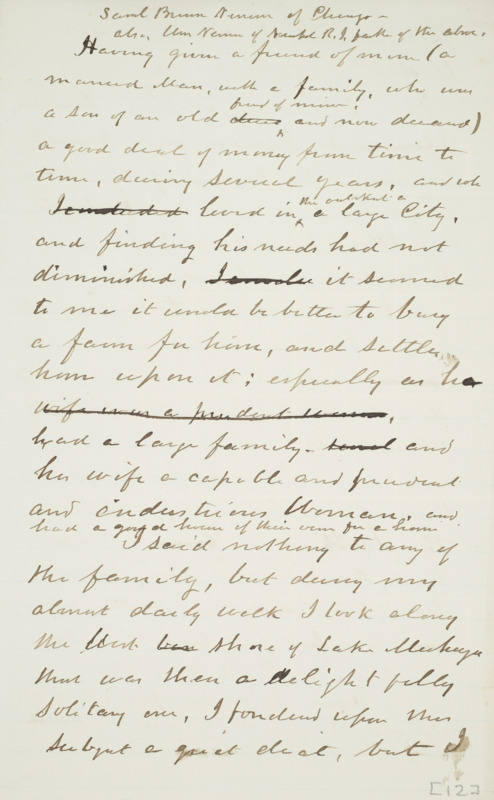 Saml Brown of Chicago -
also, Wm of R.I. of the above.
Having given a friend of mine (a
married Man, with a family, who was
friend of mine,
a son of an old and now deceased)
a good deal of money from time to
time, during several years, and who
the outskirts
I concluded lived in a large City,
and finding his needs had not
diminished, it seemed
to me it would be better to buy
a farm for him, and settle
him upon it; especially as he
wife was a prudent woman,
had a large family - and
his wife a capable and prudent
and industrious Woman, and
had a good team of their own for a farm
I said nothing to any of
the family, but during my
almost daily walk I took along
the West shore of Lake Michigan
that was then a delightfully
solitary one, I pondered upon this
subject a great deal, but I
[12]